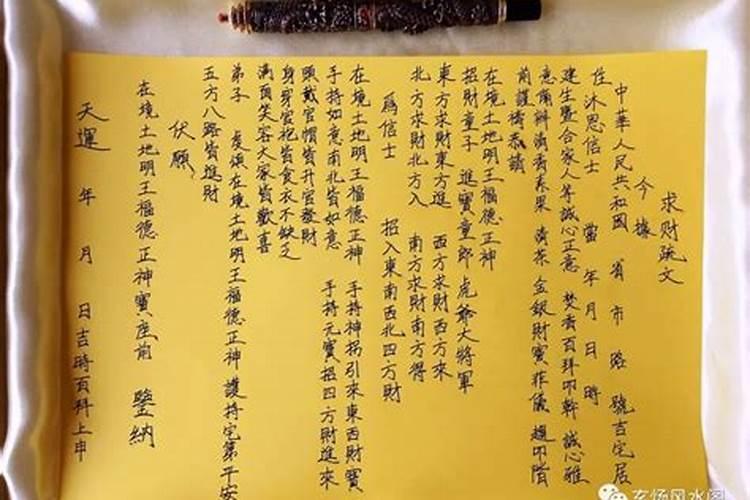 求财疏文
今據
中華人民共和國 省 市 路 號吉宅居
住 沐恩信士 當年 月 日 時
建生暨合家人等誠心正意 焚香百拜叩幹 誠心雅
意備辦清香蔬果 清茶 金銀財寶菲儀 趨叩階
前護禱恭請
在境土地明王福德正神
招財童子 進寶童郎 虎爺大將軍
東方求財東方進 西方求財西方來
北方求財北方入 南方求財南方得
為信士 招入東南西北四方財
在境土地明王福德正神 手持神拐引來東西財寶
手持如意南北皆如意 手持元寶招四方財進來
頭戴官帽皆升官發財
身穿官袍皆食衣不缺乏
滿面笑容大家皆歡喜
弟子 虔頌在境土地明王福德正神 護持宅第平安
五方八路皆進財
伏願
在境土地明王福德正神寶座前 鑒納
天運 年 月 日吉時百拜上申
玄炀风水阁